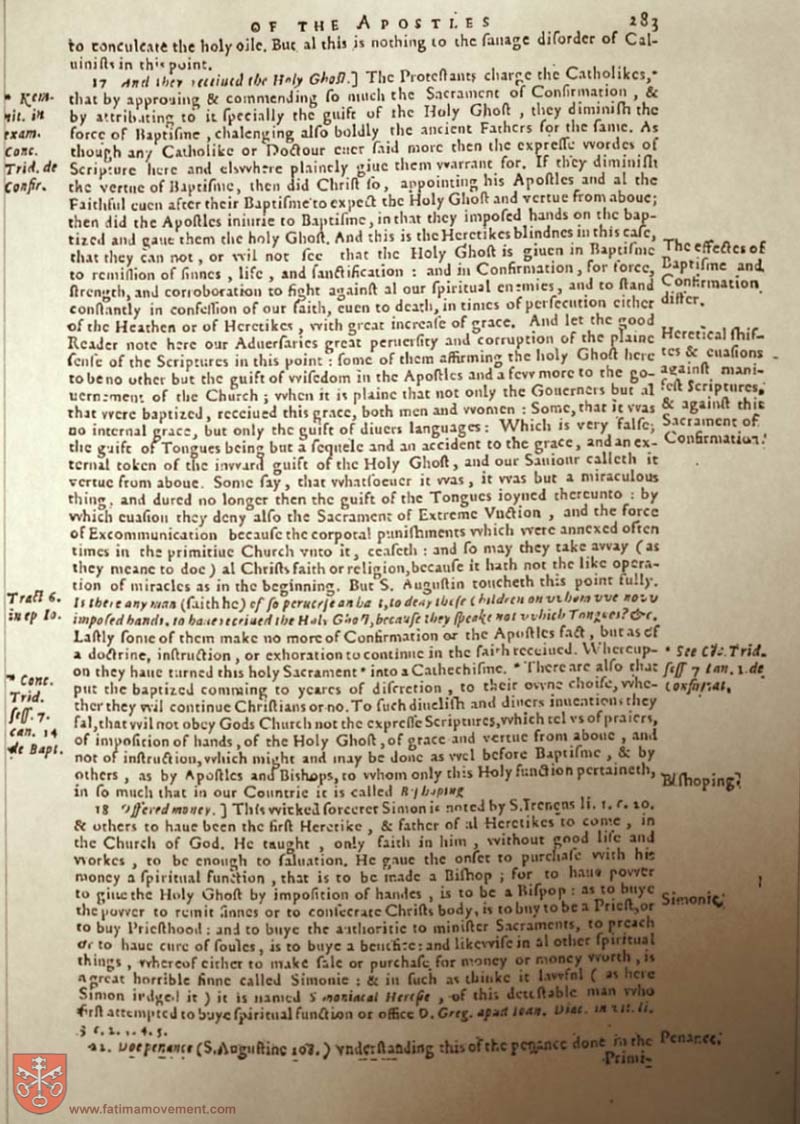 OF THE APOSTLES 283
to conculcate the holy oile. But al this is nothing to the ſauage diſorder of Cal-
uiniſts in this point.
17 And they receiued the Holy Ghoſt.] The Proteſtants charge the Catholikes,*
that by approuing & commending ſo much the Sacrament of Confirmation, &
by attributing to it ſpecially the guift of the Holy Ghoſt, they diminiſh the
force of Baptiſme, chalenging alſo boldly the ancient Fathers for the ſame. As
though any Catholike or Doctour euer ſaid more then the expreſſe wordes of
Scripture here and elswhere plainely giue them warrant for. If they diminiſh
the vertue of Baptiſme, then did Chriſt ſo, appointing his Apoſtles and al the
Faithful euen after their Baptiſme to expect the Holy Ghoſt and vertue from aboue;
then did the Apoſtles iniurie to Baptiſme, in that they impoſed hands on the bap-
tized and gaue them the holy Ghoſt. And this is the Heretikes blindnes in this caſe,
that they can not, or wil not ſee that the Holy Ghoſt is giuen in Baptiſme
to remiſſion of ſinnes, life, and ſanctification: and in Confirmation, for force,
ſtrength, and corroboration to fight againſt al our ſpiritual enemies, and to ſtand
conſtantly in confeſſion of our faith, euen to death, in times of perſecution either
of the Heathen or of Heretikes, with great increaſe of grace. And let the good
Reader note here our Aduerſaries great peruerſity and corruption of the plaine
ſenſe of the Scriptures in this point: ſome of them affirming the holy Ghoſt here
to be no other but the guift of wiſedom in the Apoſtles and a few more to the go-
uernement of the Church; when it is plaine that not only the Gouerners but al
that were baptized, receiued this grace, both men and women: Some, that it was
no internal grace, but only the guift of diuers languages: Which is very falſe,
the guift of Tongues being but a ſequele and an accident to the grace, and an ex-
ternal token of the inward guift of the Holy Ghoſt, and our Sauiour calleth it
vertue from aboue. Some ſay, that whatſoeuer it was, it was but a miraculous
thing, and dured no longer then the guift of the Tongues ioyned thereunto: by
which euaſion they deny alſo the Sacrament of Extreme Vnction, and the force
of Excommunication becauſe the corporal puniſhments which were annexed often
times in the primitiue Church vnto it, ceaſeth: and ſo may they take away (as
they meane to doe) al Chriſts faith or religion, becauſe it hath not the like opera-
tion of miracles as in the beginning. But S. Auguſtin toucheth this point fully.
Is there any man (ſaith he) of ſo peruerſe an ha t, to deny theſe Children on whom we now
impoſed hands, to haue receiued the Holy Ghoſt, becauſe they ſpeake not with Tongues? &c.
Laſtly ſome of them make no more of Confirmation or the Apoſtles fact, but as of
a doctrine, inſtruction, or exhoration to continue in the faith receiued. Whereup-
on they haue turned this holy Sacrament * into a Cathechiſme. * There are alſo that
put the baptized comming to yeares of diſcretion, to their owne choiſe, whe-
ther they wil continue Chriſtians or no. To ſuch diueliſh and diuers inuentions they
fal, that wil not obey Gods Church not the expreſſe Scriptures, which tel vs of praiers,
of impoſition of hands, of the Holy Ghoſt, of grace and vertue from aboue, and
not of inſtruction, which might and may be done as wel before Baptiſme, & by
others, as by Apoſtles and Bishops, to whom only this Holy function pertaineth,
in ſo much that in our Countrie it is called Biſhoping
18 Offered money.] This wicked ſorcerer Simon is noted by S. Irenęus li. 1. c. 20.
& others to haue been the firſt Heretike, & father of al Heretikes to come, in
the Church of God. He taught, only faith in him, without good life and
workes, to be enough to ſaluation. He gaue the onſet to purchaſe with his
money a ſpiritual function, that is to be made a Biſhop; for to haue power
to giue the Holy Ghoſt by impoſition of handes, is to be a Biſpop: as to buye
the power to remit ſinnes or to conſecrate Chriſts body, is to buy to be a Prieſt, or
to buy Prieſthood: and to buye the authoritie to miniſter Sacraments, to preach
or to haue cure of ſoules, is to buye a benefice: and likewiſe in al other ſpiritual
things, whereof either to make ſale or purchaſe for money or money worth, is
a great horrible ſinne called Simonie: & in ſuch as thinke it lawful (as here
Simon iudged it) it is named Simoniacal Hereſie, of this deteſtable man who
firſt attempted to buye ſpiritual function or office D. Greg. apud Ioan. Diac. in vit. li.
3 c. 2. 3. 4. 5.
22. Doe penance (S. Auguſtine 108.) vnderſtanding this of the penance done in the
Primi-
* Kem-
nit. in
exam.
Conc.
Trid. de
Confir.
Tract 6.
in ep Io.
* Conc.
Trid.
ſeſſ. 7.
can. 14
de Bapt.
The effectes of
Baptiſme and
Confirmation
differ.
Heretical ſhif-
tes & euaſions
againſt mani-
feſt Scriptures,
& againſt this
Sacrament of
Confirmation.
* See Cōc. Trid.
ſeſſ 7 can. 1. de
confirmat.
Biſhoping.
Simonie.
Penance.
www.fatimamovement.com